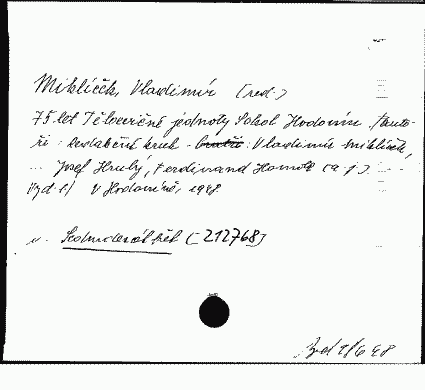 Miklíček, Vladimír (red.)
75 let Tělocvičné jednoty Sokol Hodonín. /Auto-
ři - redakční kruh - bratři: Vladimír Miklíček,
... Josef Hrubý, Ferdinand Homola (a j.)
Vyd. 1/ V Hodoníně, 1948
v. Sedmdesát pět (212768)
1/6 48